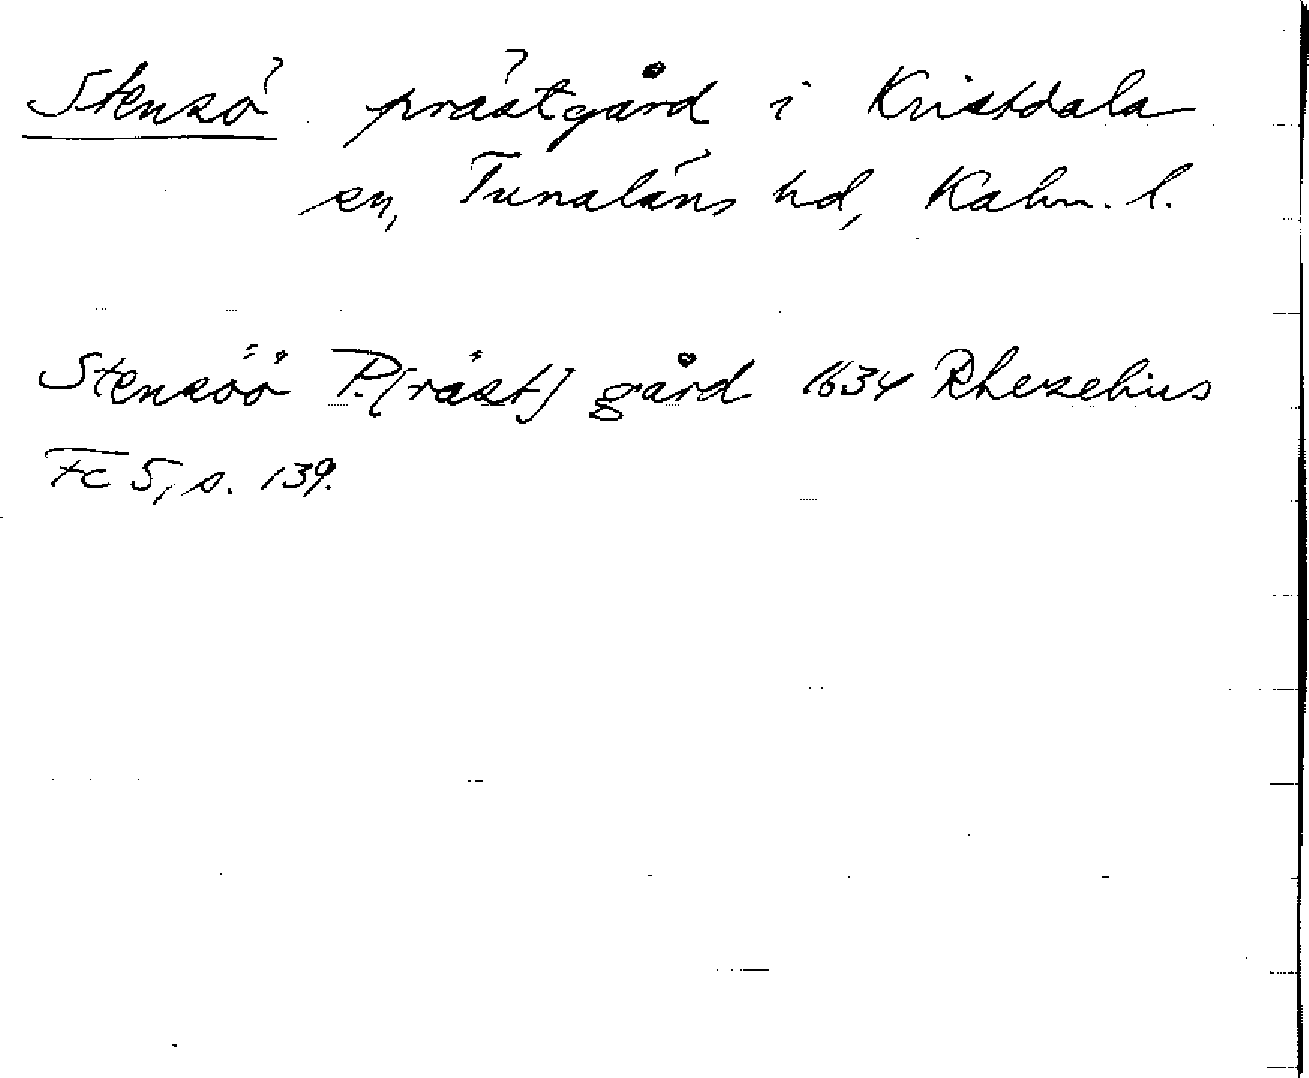 Stensö prästgård i Kristdala
sn, Tunaläns hd, Kalm. l.
Stensöö P.[räst] gård 1634 Rhezelius
Fc 5, s. 139.